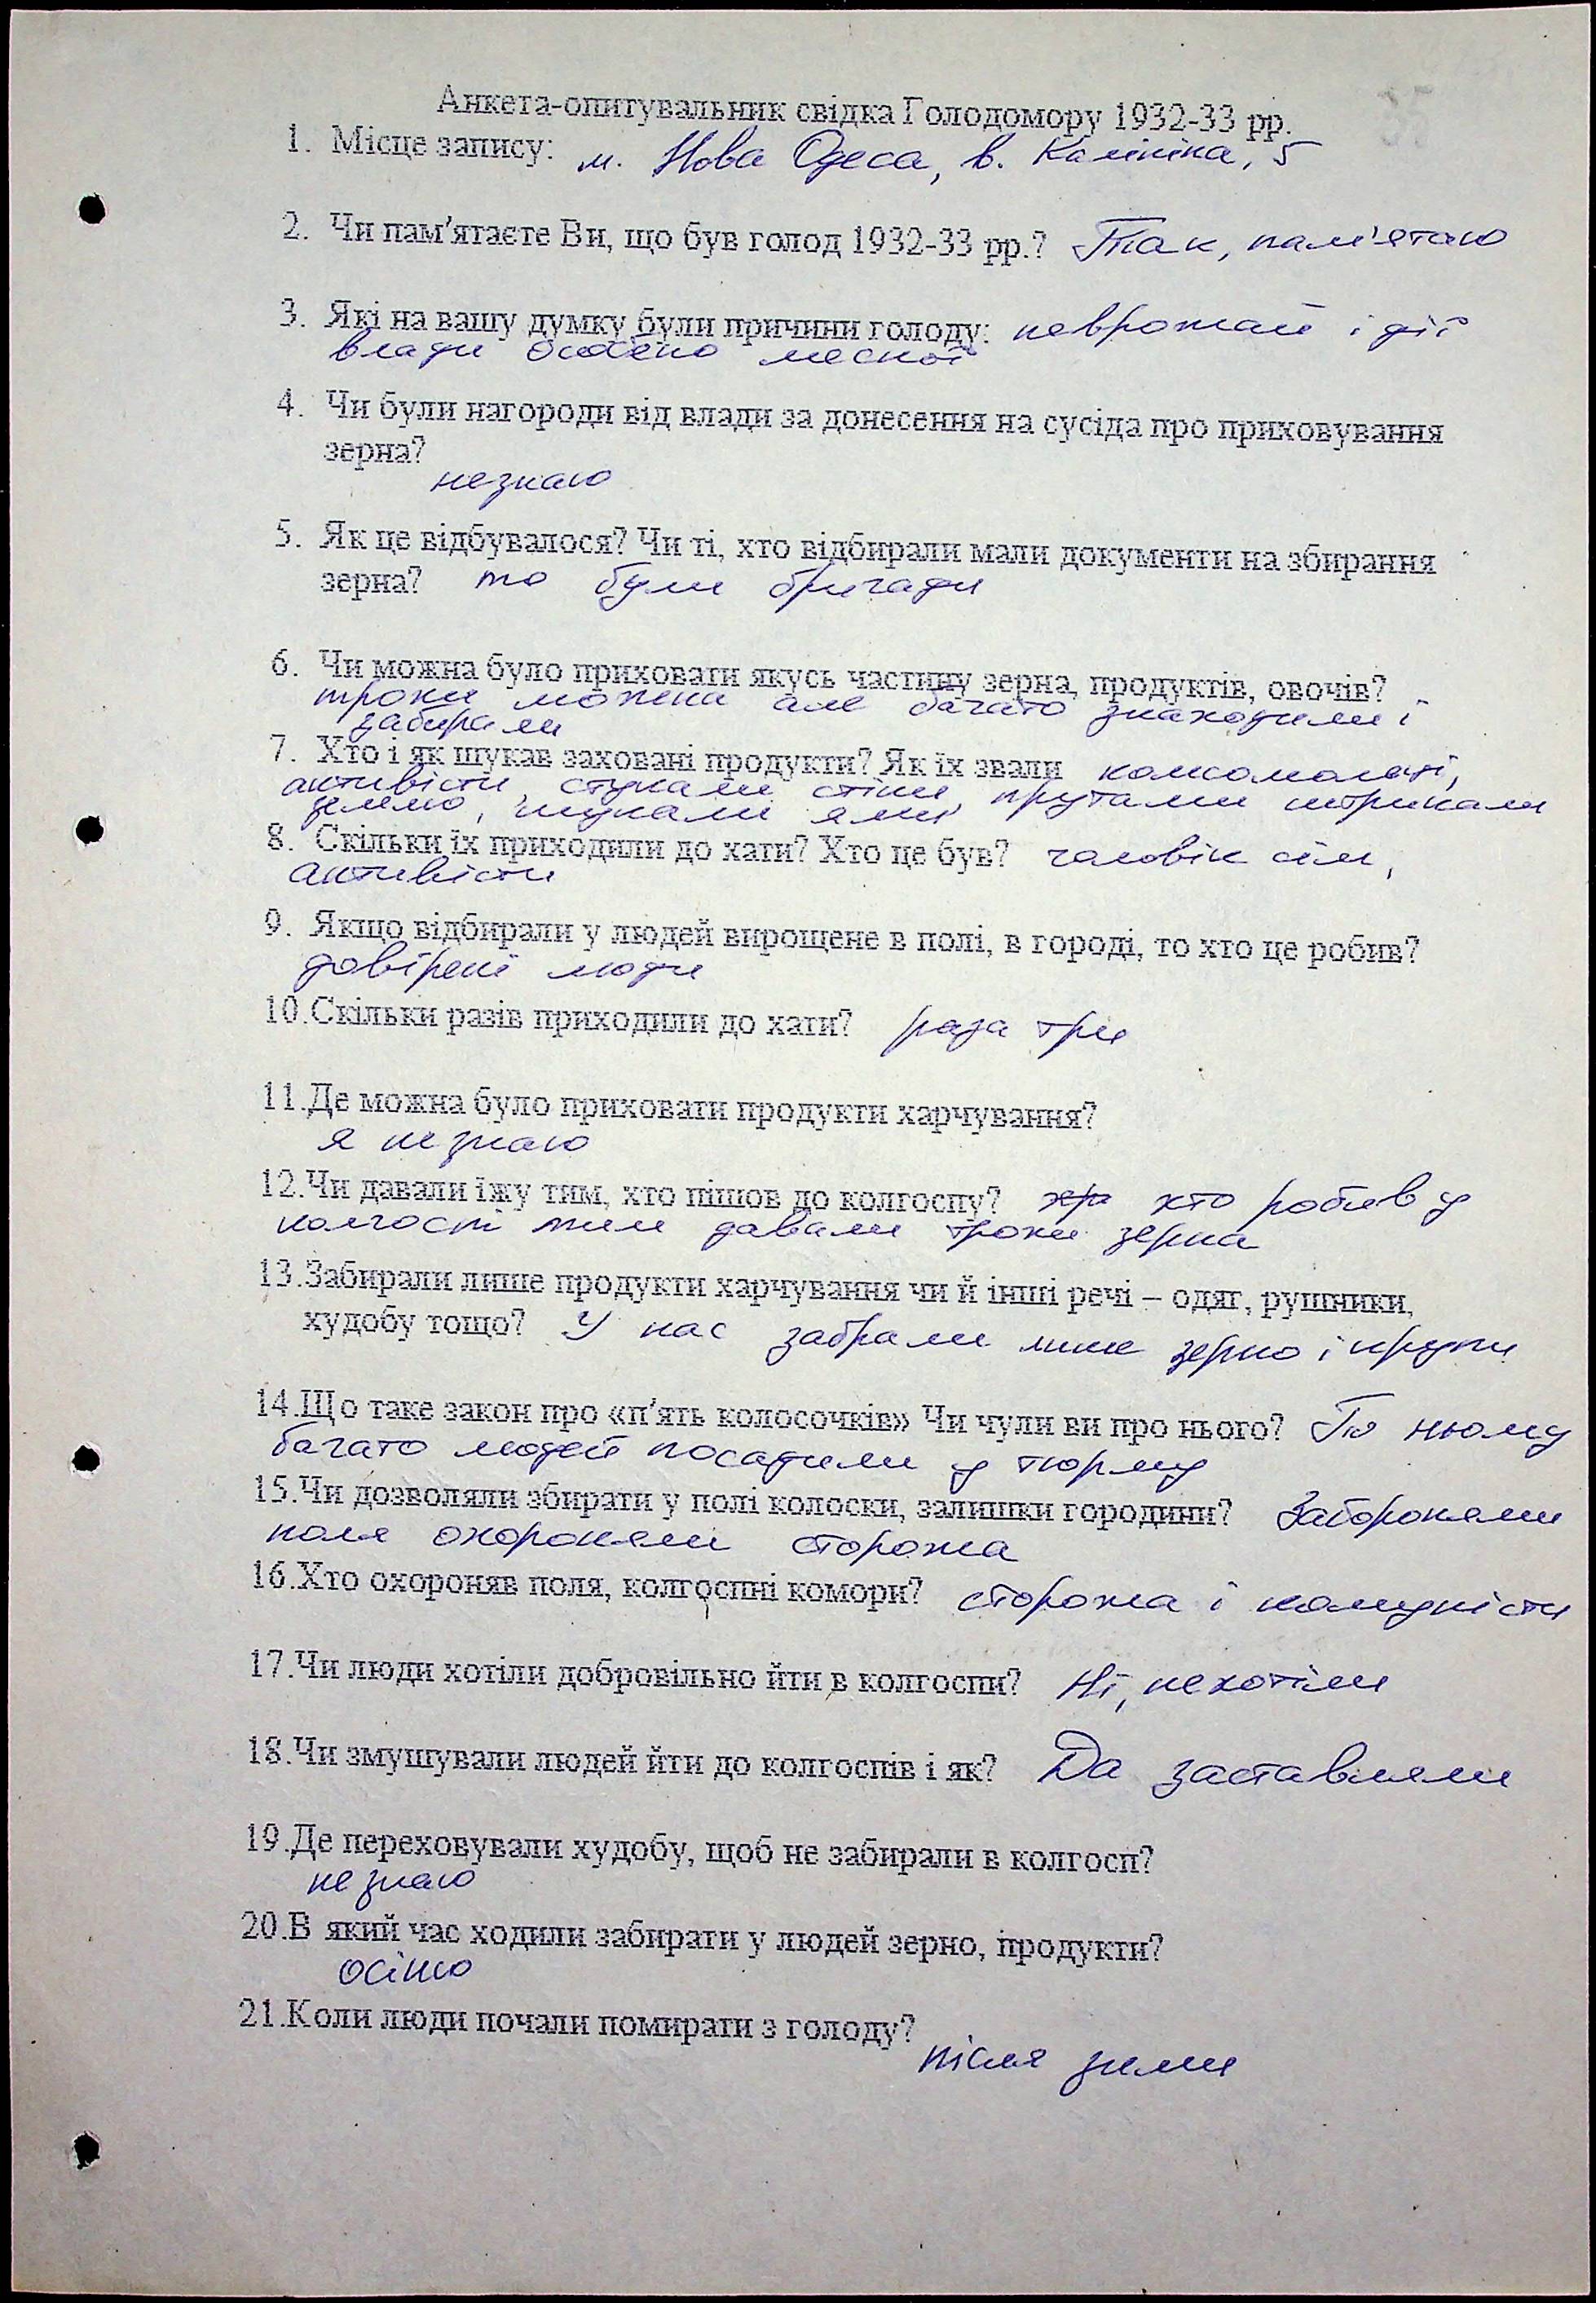 35
Анкета-опитувальник свідка Голодомору 1932-33 рр.
1. Місце запису: м. Нова Одеса, в. Калініна, 5
2. Чи пам'ятаєте Ви, що був голод 1932-33 рр.? Так, пам'ятаю
3. Які на вашу думку були причини голоду: неврожай і дії
влади особено месної
4. Чи були нагороди від влади за донесення на сусіда про приховування
зерна?
незнаю
5. Як це відбувалося? Чи ті, хто відбирали мали документи на збирання
зерна? то були бригади
6. Чи можна було приховати якусь частину зерна, продуктів, овочів?
трохи можна але багато знаходили і
забирали
7. Хто і як шукав заховані продукти? Як їх звали комсомольці,
активісти, стукали стіни, прутами штрикали
землю, шукали ями
8. Скільки їх приходили до хати? Хто це був? чоловік сім,
активісти
9. Якщо відбирали у людей вирощене в полі, в городі, то хто це робив?
довірені люди
10.Скільки разів приходили до хати? раза три
11.Де можна було приховати продукти харчування?
я не знаю
12.Чи давали їжу тим, хто пішов до колгоспу? хто робив у
колгоспі тим давали трохи зерна
13.Забирали лише продукти харчування чи й інші речі – одяг, рушники,
худобу тощо? У нас забрали лише зерно і крупи
14.Що таке закон про «п'ять колосочків» Чи чули ви про нього? По ньому
багато людей посадили у тюрму
15.Чи дозволяли збирати у полі колоски, залишки городини? Забороняли
поля охороняли сторожа
16.Хто охороняв поля, колгоспні комори? сторожа і комуністи
17.Чи люди хотіли добровільно йти в колгоспи? Ні, нехотіли
18.Чи змушували людей йти до колгоспів і як? Да заставляли
19.Де переховували худобу, щоб не забирали в колгосп?
не знаю
20.В який час ходили забирати у людей зерно, продукти?
осінню
21.Коли люди почали помирати з голоду?
після зими